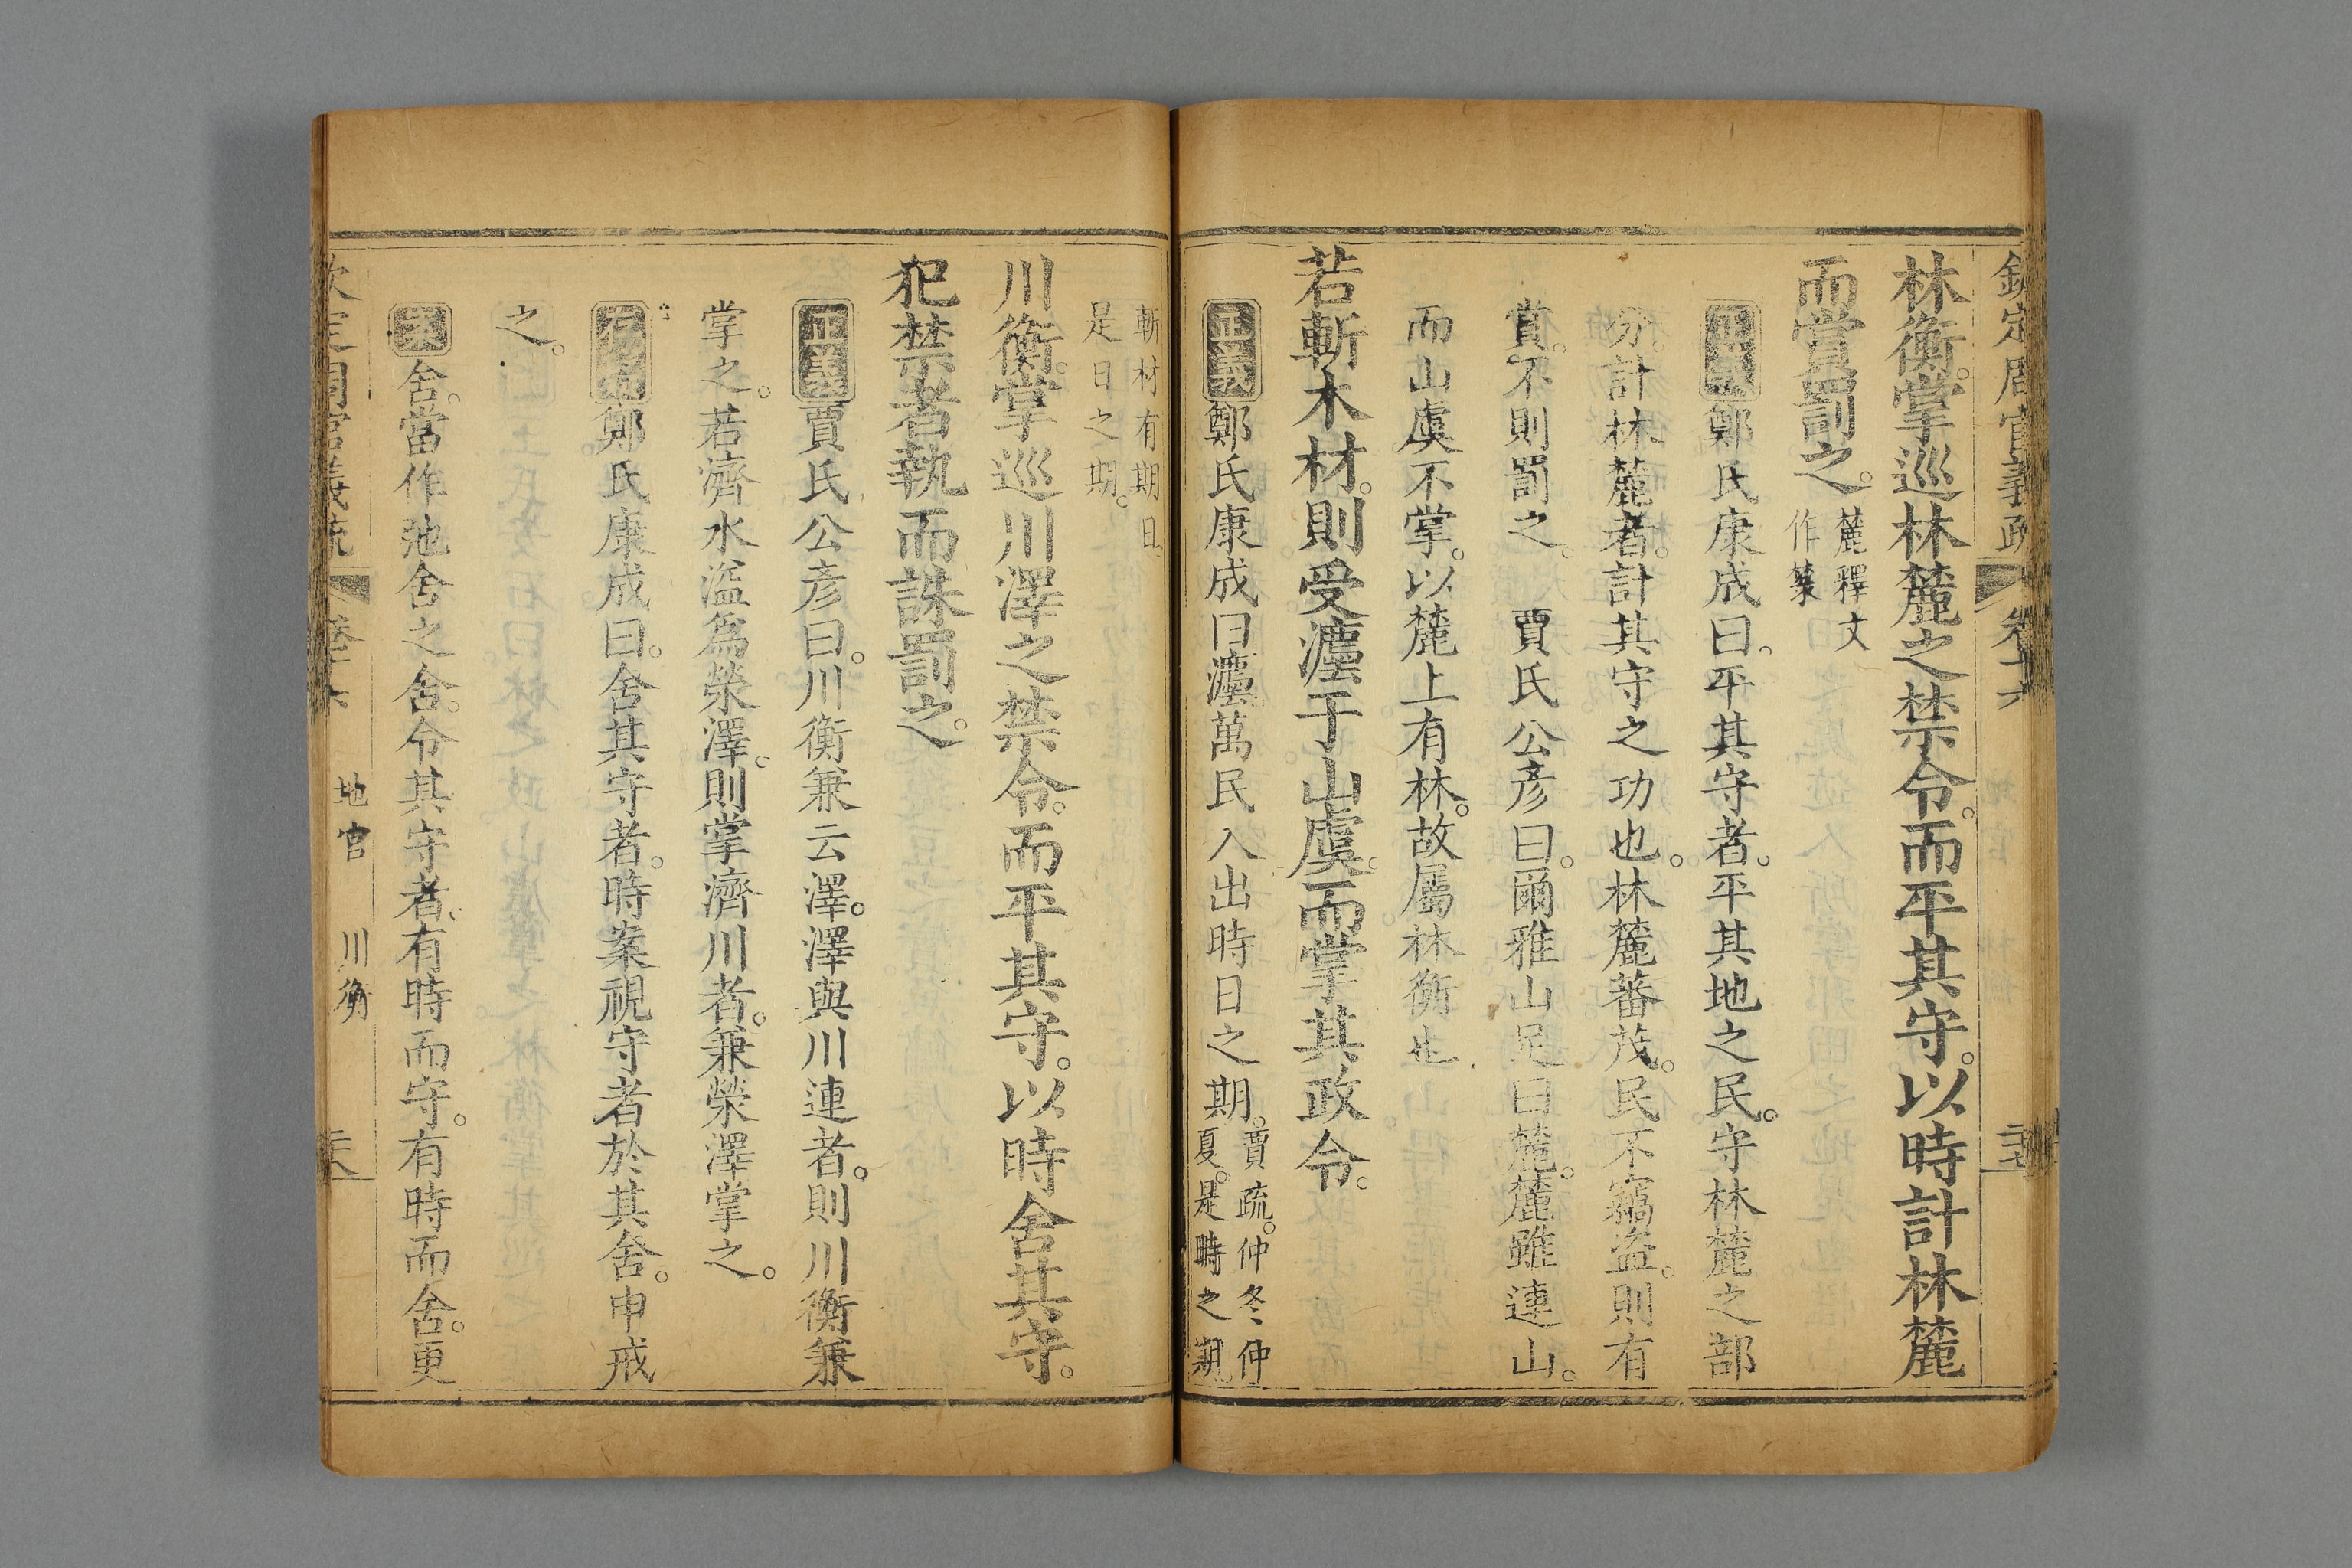 欽定周官義疏 卷十六
林衡。掌巡林麓之禁令。而平其守。以時計林麓
而賞罰之。麓釋文
作䔲
正義鄭氏康成曰。平其守者。平其地之民。守林麓之部
分。計林麓者。計其守之功也。林麓蕃茂。民不竊盜。則有
賞。不則罰之。 賈氏公彥曰。爾雅山足曰麓。麓雖連山。
而山虞不掌。以麓上有林。故屬林衡也
若斬木材。則受灋于山虞。而掌其政令。
正義鄭氏康成曰灋萬民入出時日之期。賈疏。仲冬仲
夏。是時之期。
斬材有期日。
是日之期。
川衡。掌巡川澤之禁令。而平其守。以時舍其守。
犯禁者執而誅罰之。
正義賈氏公彥曰。川衡兼云澤。澤與川連者。則川衡兼
掌之。若濟水溢爲滎澤。則掌濟川者。兼滎澤掌之。
鄭氏康成曰。舍其守者。時案視守者於其舍。申戒
之。
舍。當作弛舍之舍。令其守者。有時而守。有時而舍。更
欽定周官義疏 卷十六 地官 川衡